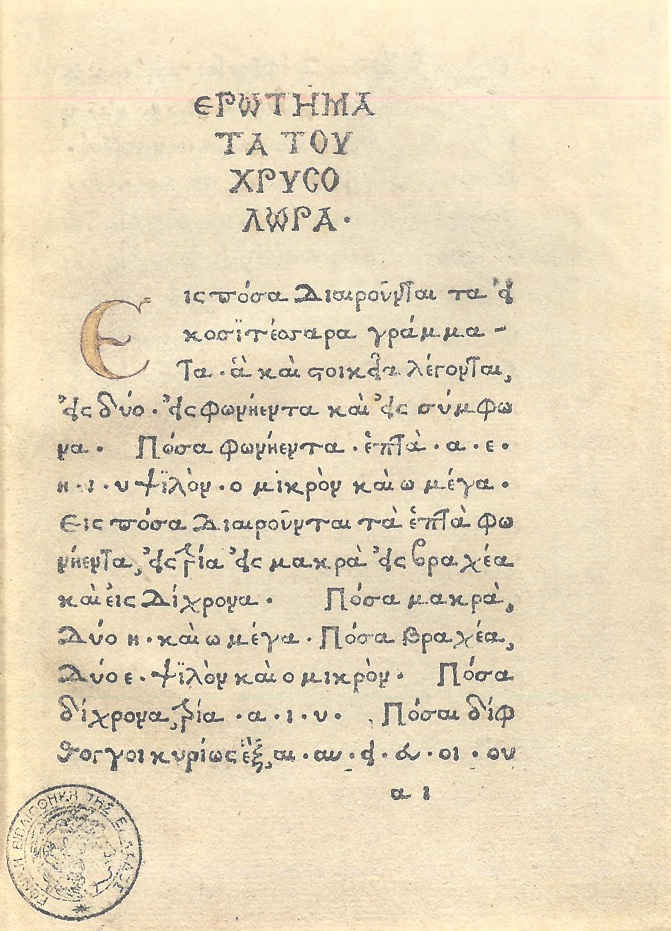 ΕΡΩΤΗΜΑ
ΤΑ ΤΟΥ
ΧΡΥϹΟ
ΛΩΡΑ·
Εις πόσα διαιροῦνται τα εἰ
κοσιτέσσαρα γράμμα-
τα· ἃ καὶ στοιχεῖα λέγονται,
εἰς δύο· εἰς φωνήεντα καὶ εἰς σύμφω
να· Πόσα φωνήεντα· ἑπτὰ· α· ε·
η·ι·υ ψϊλὸν·ο μικρὸν καὶ ω μέγα·
Εις πόσα διαιροῦνται τὰ ἑπτὰ φω
νήεντα, εἰς τρία εἰς μακρὰ εἰς βραχέα
καὶ εἰς δίχρονα· Πόσα μακρὰ,
δύο η·καὶ ω μέγα· Πόσα βραχέα,
δύο ε·ψϊλὸν καὶ ο μικρὸν· Πόσα
δίχρονα, τρία·α·ι·υ· Πόσαι δίφ
θογγοι κυρίως ἓξ, αι·αυ·ει·ευ·οι·ου
α ι
ΕΘΝΙΚΗ ΒΙΒΛΙΟΘΗΚΗ ΤΗΣ ΕΛΛΑΔΟΣ